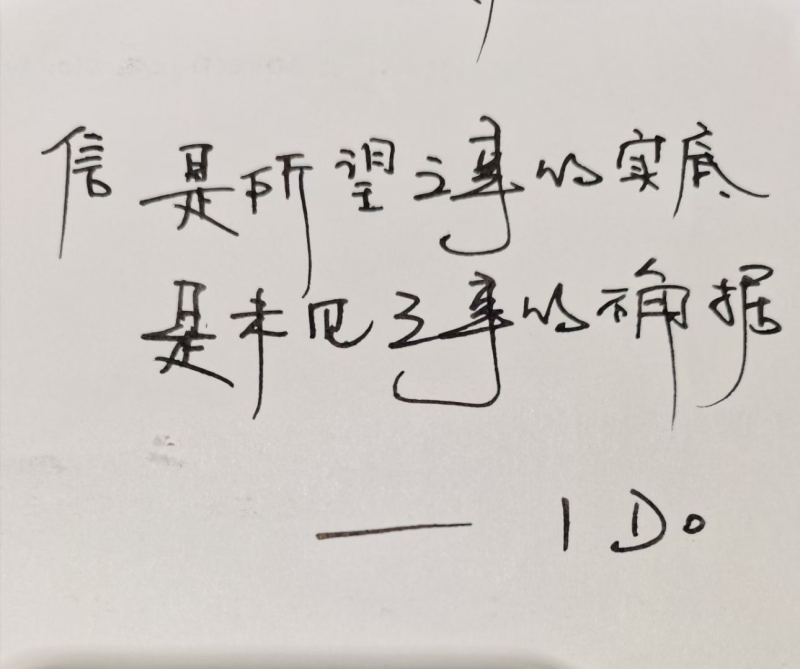 信是所望之事的实底
是未见之事的确据
—— I Do